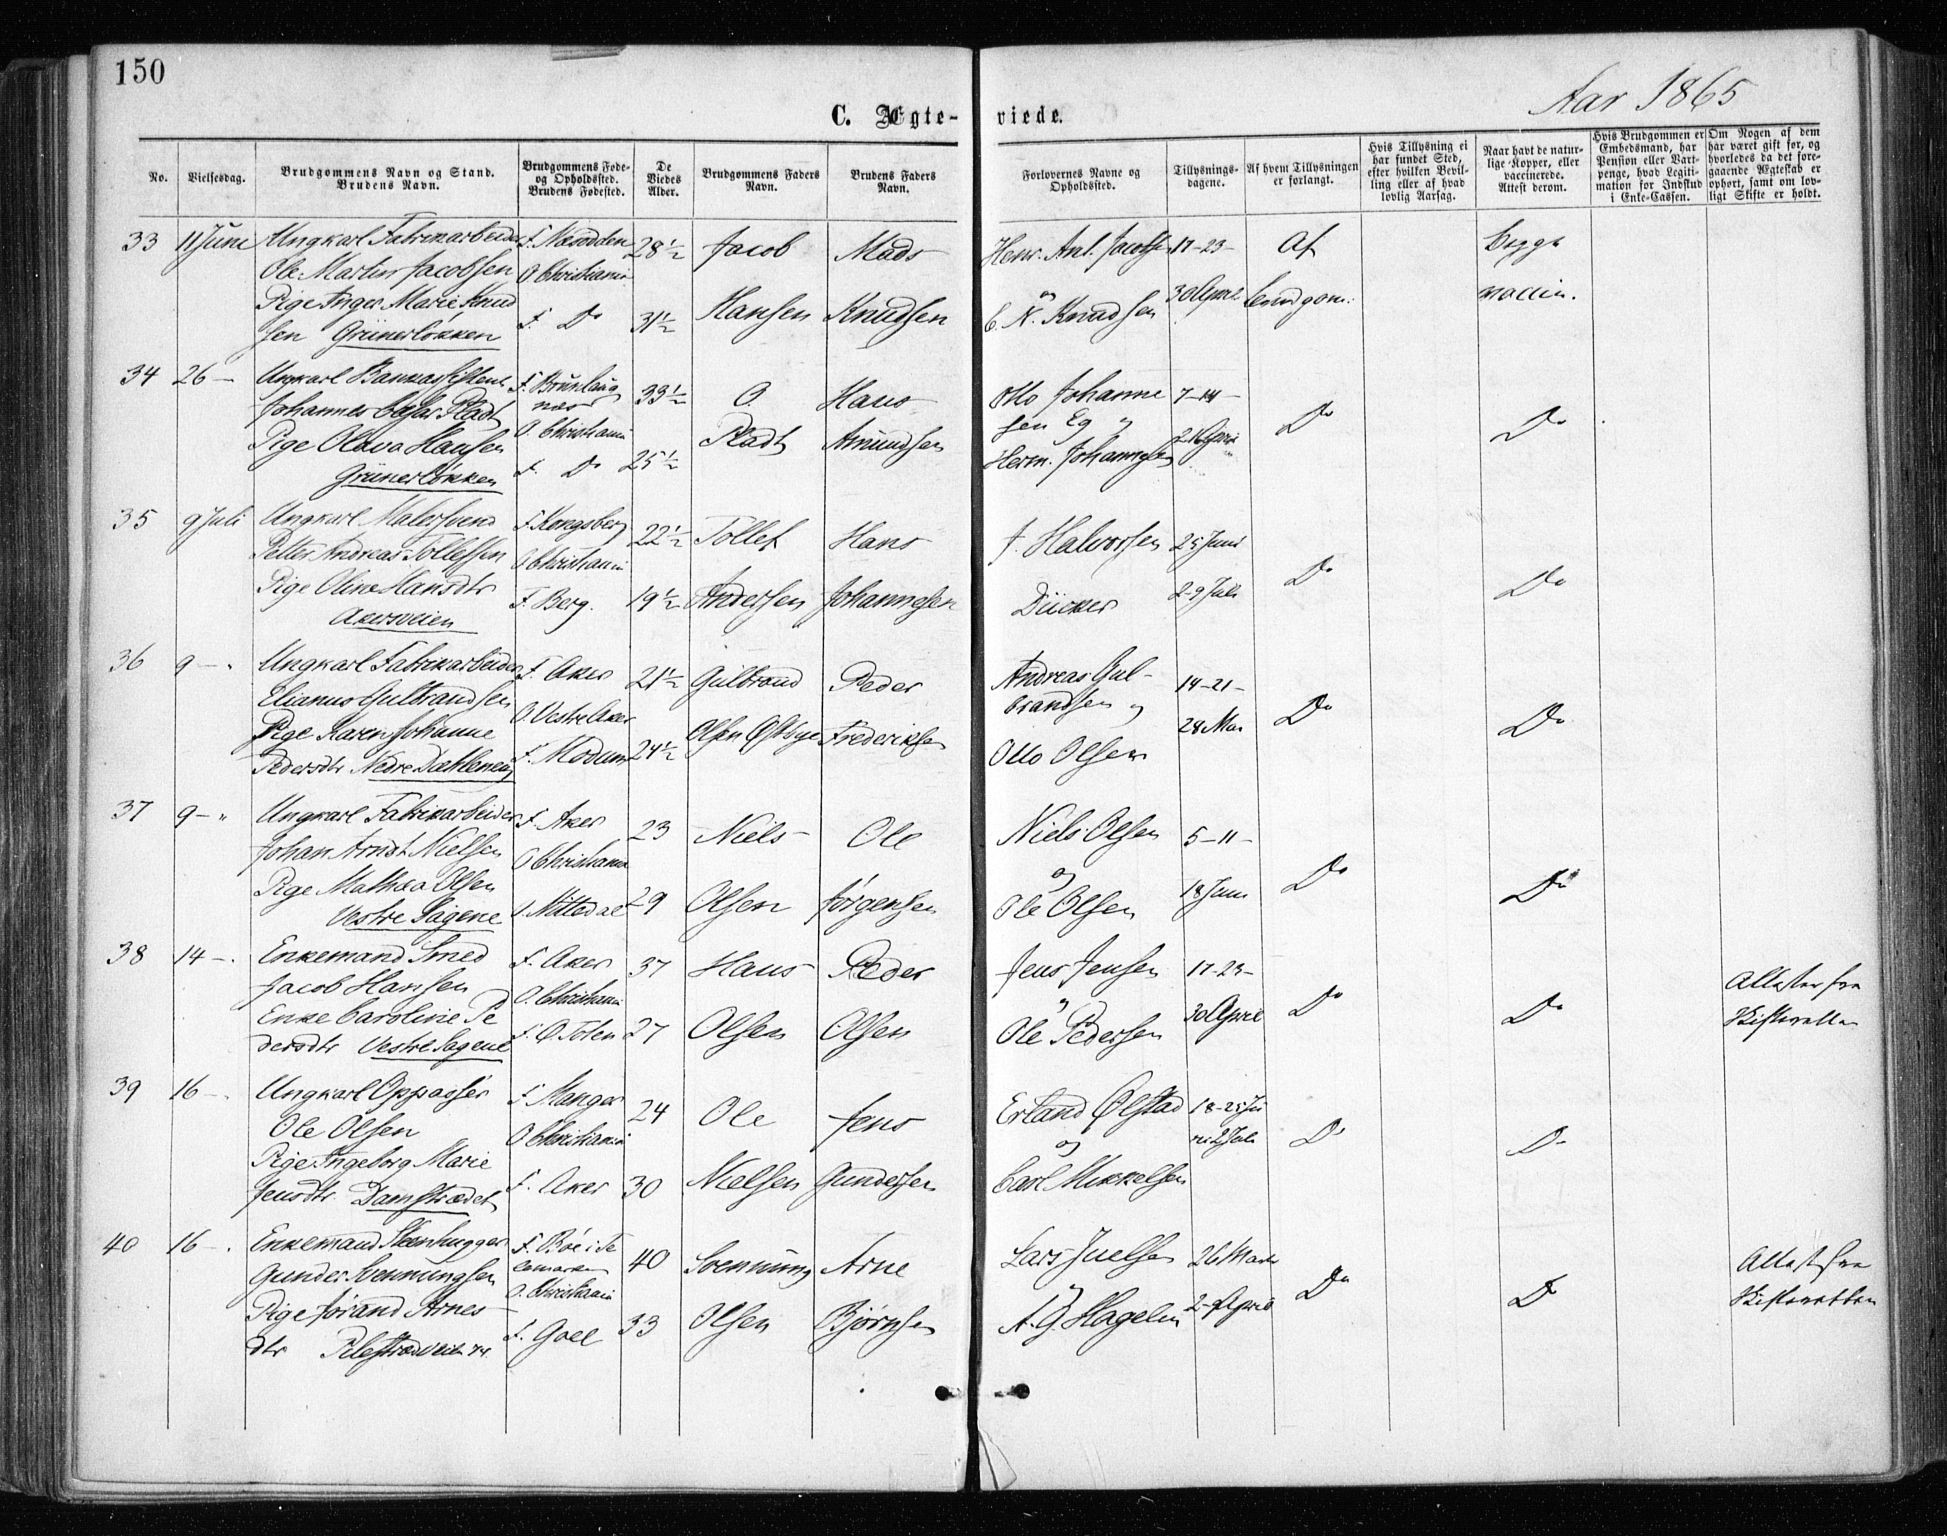 150
Aar 1865
C. Ægte- viede.
No.
Vielsesdag.
Brudgommens Navn og Stand.
Brudens Navn.
Brudgommens Føde-
og Opholdssted.
Brudens Fødested.
De
Viedes
Alder.
Brudgommens Faders
Navn.
Brudens Faders
Navn.
Forlovernes Navne og
Opholdssted.
Tillysnings-
dagene.
Af hvem Tillysningen
er forlangt.
Hvis Tillysning ei
har fundet Sted,
efter hvilken Bevil-
ling eller af hvad
lovlig Aarsag.
Naar havt de natur-
lige Kopper, eller
vaccinerede.
Attest derom.
Hvis Brudgommen er
Embedsmand, har
Pension eller Vart-
penge, hvad Legiti-
mation for Indskud
i Enke-Cassen.
Om Nogen af dem
har været gift før, og
hvorledes da det fore-
gaaende Ægteskab er
ophørt, samt om lov-
ligt Skifte er holdt.
33 11 Juni Ungkarl Fabrikarbeider F. Næsodden 28½ Jacob Mads Henr. Ant. Jacobsen 17-23- Af begge
Ole Martin Jacobsen O Christiania
Pige Inger Marie Knud Hansen Knudsen og 30 April Brudgom: vaccin.
sen Grünerløkken F. Do 31½ C. N. Knudsen
34 26 - Ungkarl Bankassistent F. Brunlaug 33½ O. Hans Otto Johanne 7-14-
Johannes Pladt næs sen Eg og Do Do
Pige Olava Hansen O Christiania Pladt Amundsen 21 April
Grünerløkken F. Do 25½ Herm. Johannesen
35 9 Juli Ungkarl Malersvend F. Kongsberg 22½ Tollef Hans J. Halvorsen 25 Juni
Petter Andreas Tollefsen O Christiania Do Do
Pige Oline Hansdtr F. Berg. 19½ Andersen Johannesen Dücker 2-9 Juli
Akersveien
36 9 - Ungkarl Fabrikarbeider F. Aker 21½ Gulbrand Peder Andreas Gul- 14-21-
Elianus Gulbrandsen O. Vestre Aker brandsen og Do Do
Pige Karen Johanne F. Modum 24½ Olsen Østbye Frederiksen 28 Mai
Pedersdtr Nedre Dælleneng Otto Olsen
37 9 - " Ungkarl Fabrikarbeider F. Aker 23 Niels Ole Niels Olsen 5-11-
Johan Arndt Nielsen O Christiania og Do Do
Pige Mathea Olsen F. Nittedal 29 Olsen Jørgensen Ole Olsen 18 Juni
Vestre Sagene
38 14 - Enkemand Smed F. Aker 37 Hans Peder Jens Jensen 17-23- Attester fra
Jacob Hansen O. Christiania og Do Do Skifteretten
Enke Caroline Pe F. Ø. Toten 27 Olsen Olsen Ole Pedersen 30 April
dersdtr Vestre Sagene
39 16 - Ungkarl Oppasser F. Manger 24 Ole Jens Erland Ølstad 18-25 Ju
Ole Olsen O Christiania og ni 2 Juli Do Do
Pige Ingeborg Marie F. Aker 30 Nielsen Gundersen Carl Mikkelsen
Jensdtr. Damstrædet
40 16 - Enkemand Steenhugger F. Bøe i Te 40 Svennung Arne Lars Juelsen 26 Marts Attest fra
Gunder Svennungsen lemarken og Do Do Skifteretten
Pige Jørand Arnes O. Christiania Olsen Bjørnsen A. G. Hagelin 2-9 April
dtr Pilestrædveien 74. F. Goel 33